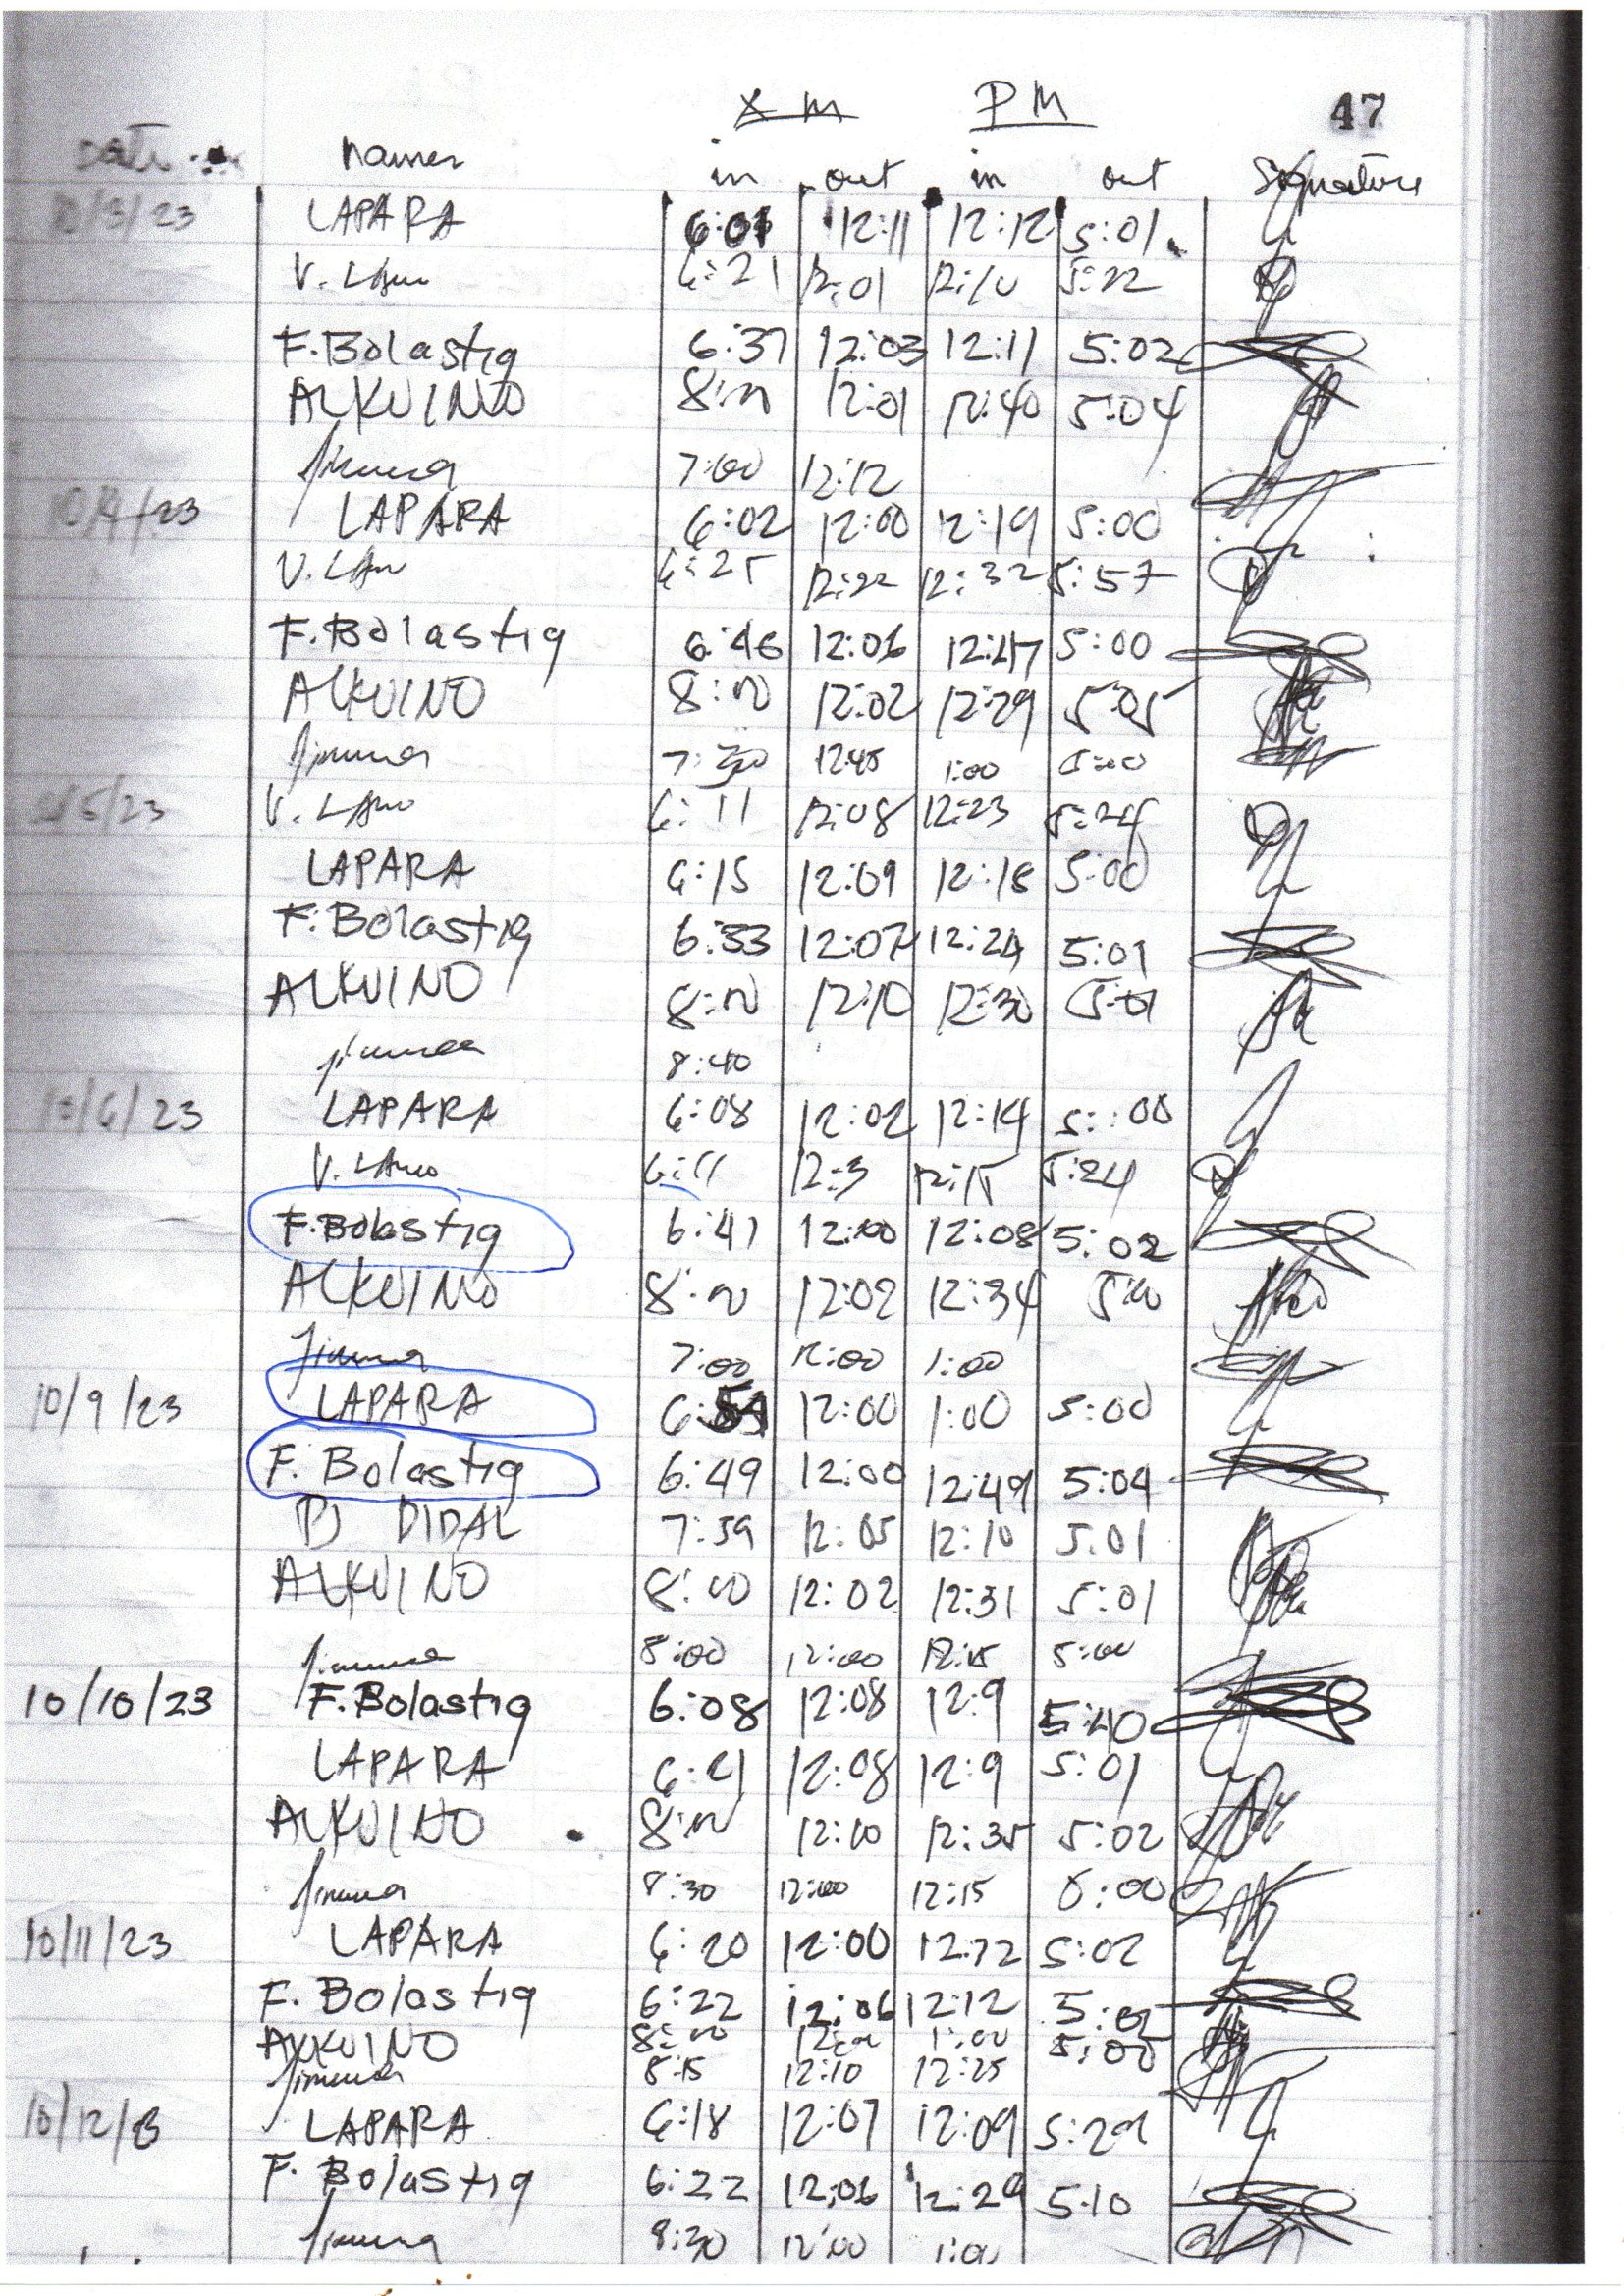 AM PM 47
Date Names in out in out Signature
10/3/23 LAPARA 6:01 12:11 12:12 5:01
V. LAno 6:21 12:01 12:10 5:22
F. Bolastig 6:37 12:03 12:11 5:02
ALKUINO 8:00 12:01 12:40 5:04
7:00 12:12
10/4/23 LAPARA 6:02 12:00 12:19 5:00
V. LAno 6:25 12:22 12:32 5:57
F. Bolastig 6:46 12:06 12:47 5:00
ALKUINO 8:00 12:02 12:29 5:05
7:30 12:45 1:00 5:00
10/5/23 V. LAno 6:11 12:08 12:23 5:24
LAPARA 6:15 12:09 12:18 5:00
F. Bolastig 6:53 12:07 12:24 5:01
ALKUINO 8:00 12:10 12:30 5:01
8:40
10/6/23 LAPARA 6:08 12:02 12:14 5:00
V. LAno 6:11 12:3 12:15 5:24
F. Bolastig 6:41 12:00 12:08 5:02
ALKUINO 8:00 12:02 12:34 5:00
7:00 12:00 1:00
10/9/23 LAPARA 12:00 1:00 5:00
F. Bolastig 6:49 12:00 12:49 5:04
PJ DIDAL 7:59 12:05 12:10 5:01
ALKUINO 8:00 12:02 12:31 5:01
8:00 12:00 12:15 5:00
10/10/23 F. Bolastig 6:08 12:08 12:9 5:40
LAPARA 6:21 12:08 12:9 5:01
ALKUINO 8:00 12:10 12:35 5:02
8:30 12:00 12:15 5:00
10/11/23 LAPARA 6:20 12:00 12:12 5:02
F. Bolastig 6:22 12:06 12:12 5:02
ALKUINO 8:00 12:00 1:00 5:00
8:15 12:10 12:25
10/12/23 LAPARA 6:18 12:07 12:09 5:29
F. Bolastig 6:22 12:06 12:29 5:10
8:30 12:00 1:00